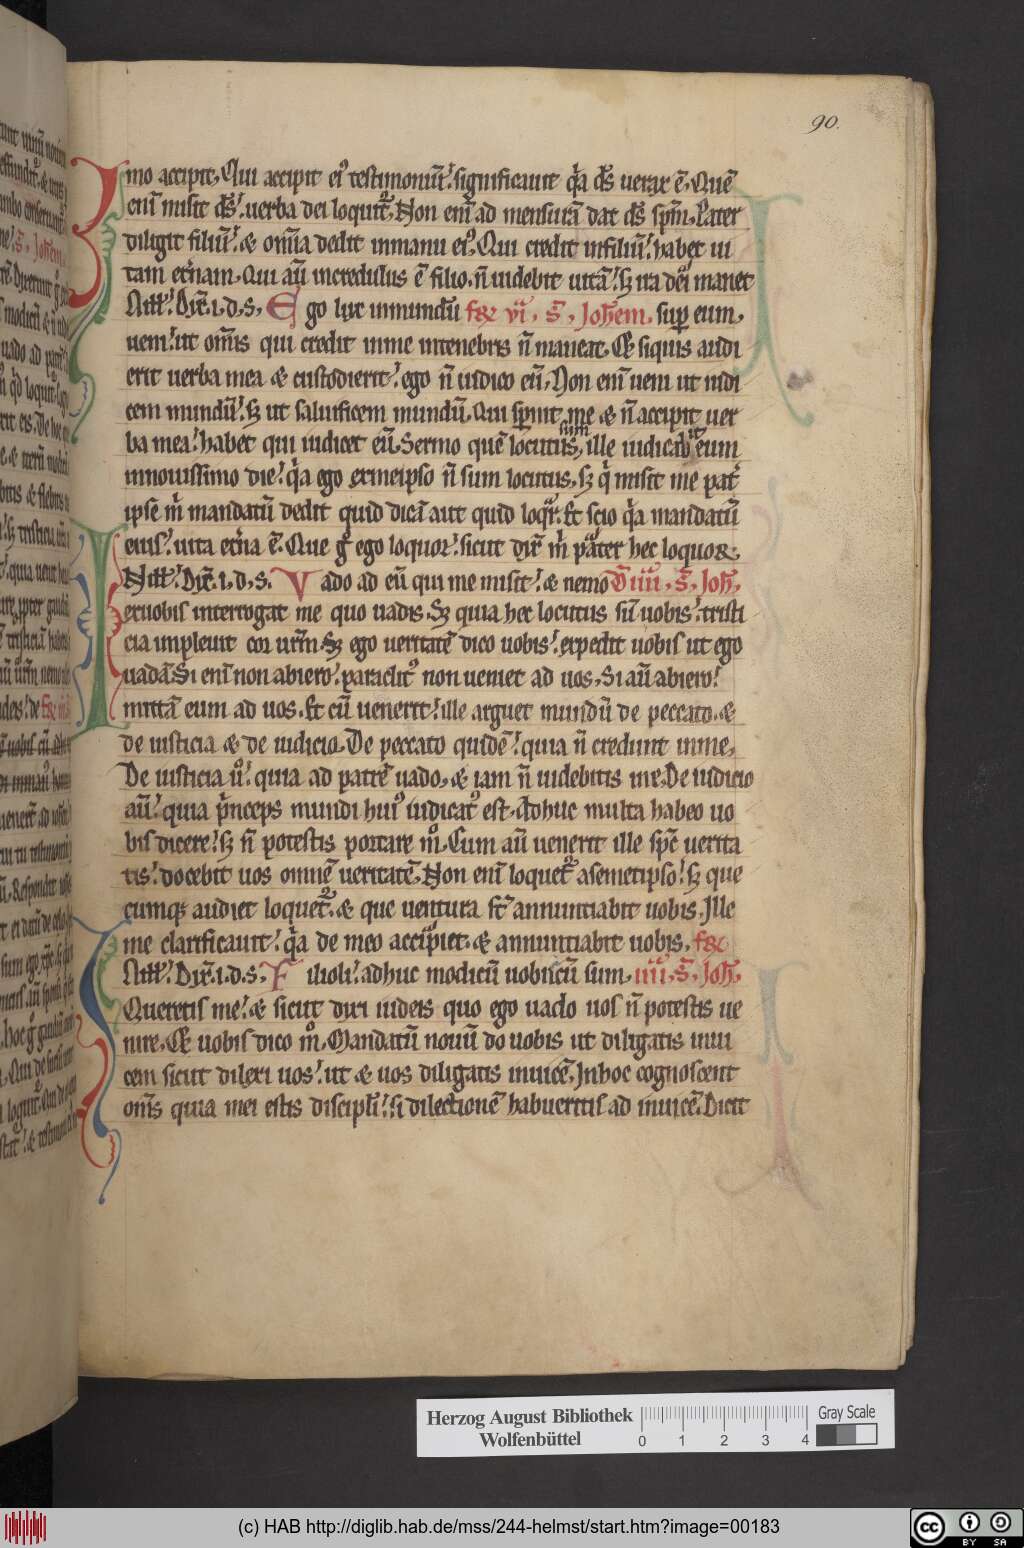 90.
mo accipit. Qui accipit ei᾽ testimoniū. significauit q̇a d̄s uerax ē. Quē
eni᷑ misit d̄s. uerba dei loquit᷑. Non eni᷑ ad mensurā dat d̄s sp̄m. Pater
diligit filiū. & om̄ia dedit inmanu ei᾽. Qui credit infiliū. habet ui
tam et᷑nam. Qui aū incredulus ē filio. n̄ uidebit uitā. sꝫ ira dei manet
Dix̄. i. d. s. Ego lux inmundū fer̄ vi. s̄. Joh̄em. sup eum.
ueni. ut om̄is qui credit inme intenebris n̄ maneat. Et siquis audi
erit uerba mea & custodierit. ego n̄ iudico eū. Non eni᷑ ueni ut iudi
cem mundū. sꝫ ut saluificem mundū. Qui sp̄nit me & n̄ accipit uer
ba mea. habet qui iudicet eū. Sermo quē locutus sum, ille iudicabit eum
innouissimo die. q̇a ego exmeipso n̄ sum locutus, sꝫ q̇ misit me pat᷑
ipse ṁ mandatū dedit quid dicā aut quid loq᷑r. Et scio q̇a mandatū
eius. uita et᷑na ē. Que g̊ ego loquor. sicut dix̄ ṁ pater hec loquor.
Dix̄. i. d. s. Vado ad eū qui me misit. & nemo Dn̄i iiii. s̄. Joh̄.
exuobis interrogat me quo uadis. Sꝫ quia hec locutus sū uobis. tristi
cia impleuit cor ur̄m. Sꝫ ego ueritatē dico uobis. expedit uobis ut ego
uadā. Si eni᷑ non abiero. paraclit᾽ non ueniet ad uos. Si aū abiero.
mittā eum ad uos. Et cū uenerit. ille arguet mundū de peccato. &
de iusticia & de iudicio. De peccato quidē. quia n̄ credunt inme.
De iusticia u̇. quia ad patrē uado. & iam n̄ uidebitis me. De iudicio
aū. quia ṗnceps mundi hui᾽ iudicat᾽ est. Adhuc multa habeo uo
bis dicere. sꝫ n̄ potestis portare m̊. Cum aū uenerit ille sp̄c uerita
tis. docebit uos omnē ueritatē. Non eni᷑ loquet᷑ asemetipso. sꝫ que
cumqꝫ audiet loquet᷑. & que uentura st̄ annuntiabit uobis. Ille
me clarificauit. q̇a de meo accipiet. & annuntiabit uobis. fer̄
Dix̄. i. d. s. Filioli. adhuc modicū uobiscū sum. iiii. s̄. Joh̄.
Queretis me. & sicut dixi iudeis quo ego uado uos n̄ potestis ue
nire. Et uobis dico m̊. Mandatū nouū do uobis ut diligatis inui
cem sicut dilexi uos. ut & uos diligatis inuicē. Inhoc cognoscent
om̄s quia mei estis discipli. si dilectionē habueritis ad inuicē. Dicit
Herzog August Bibliothek
Wolfenbüttel
0 1 2 3 4
Gray Scale
(c) HAB http://diglib.hab.de/mss/244-helmst/start.htm?image=00183
cc BY SA